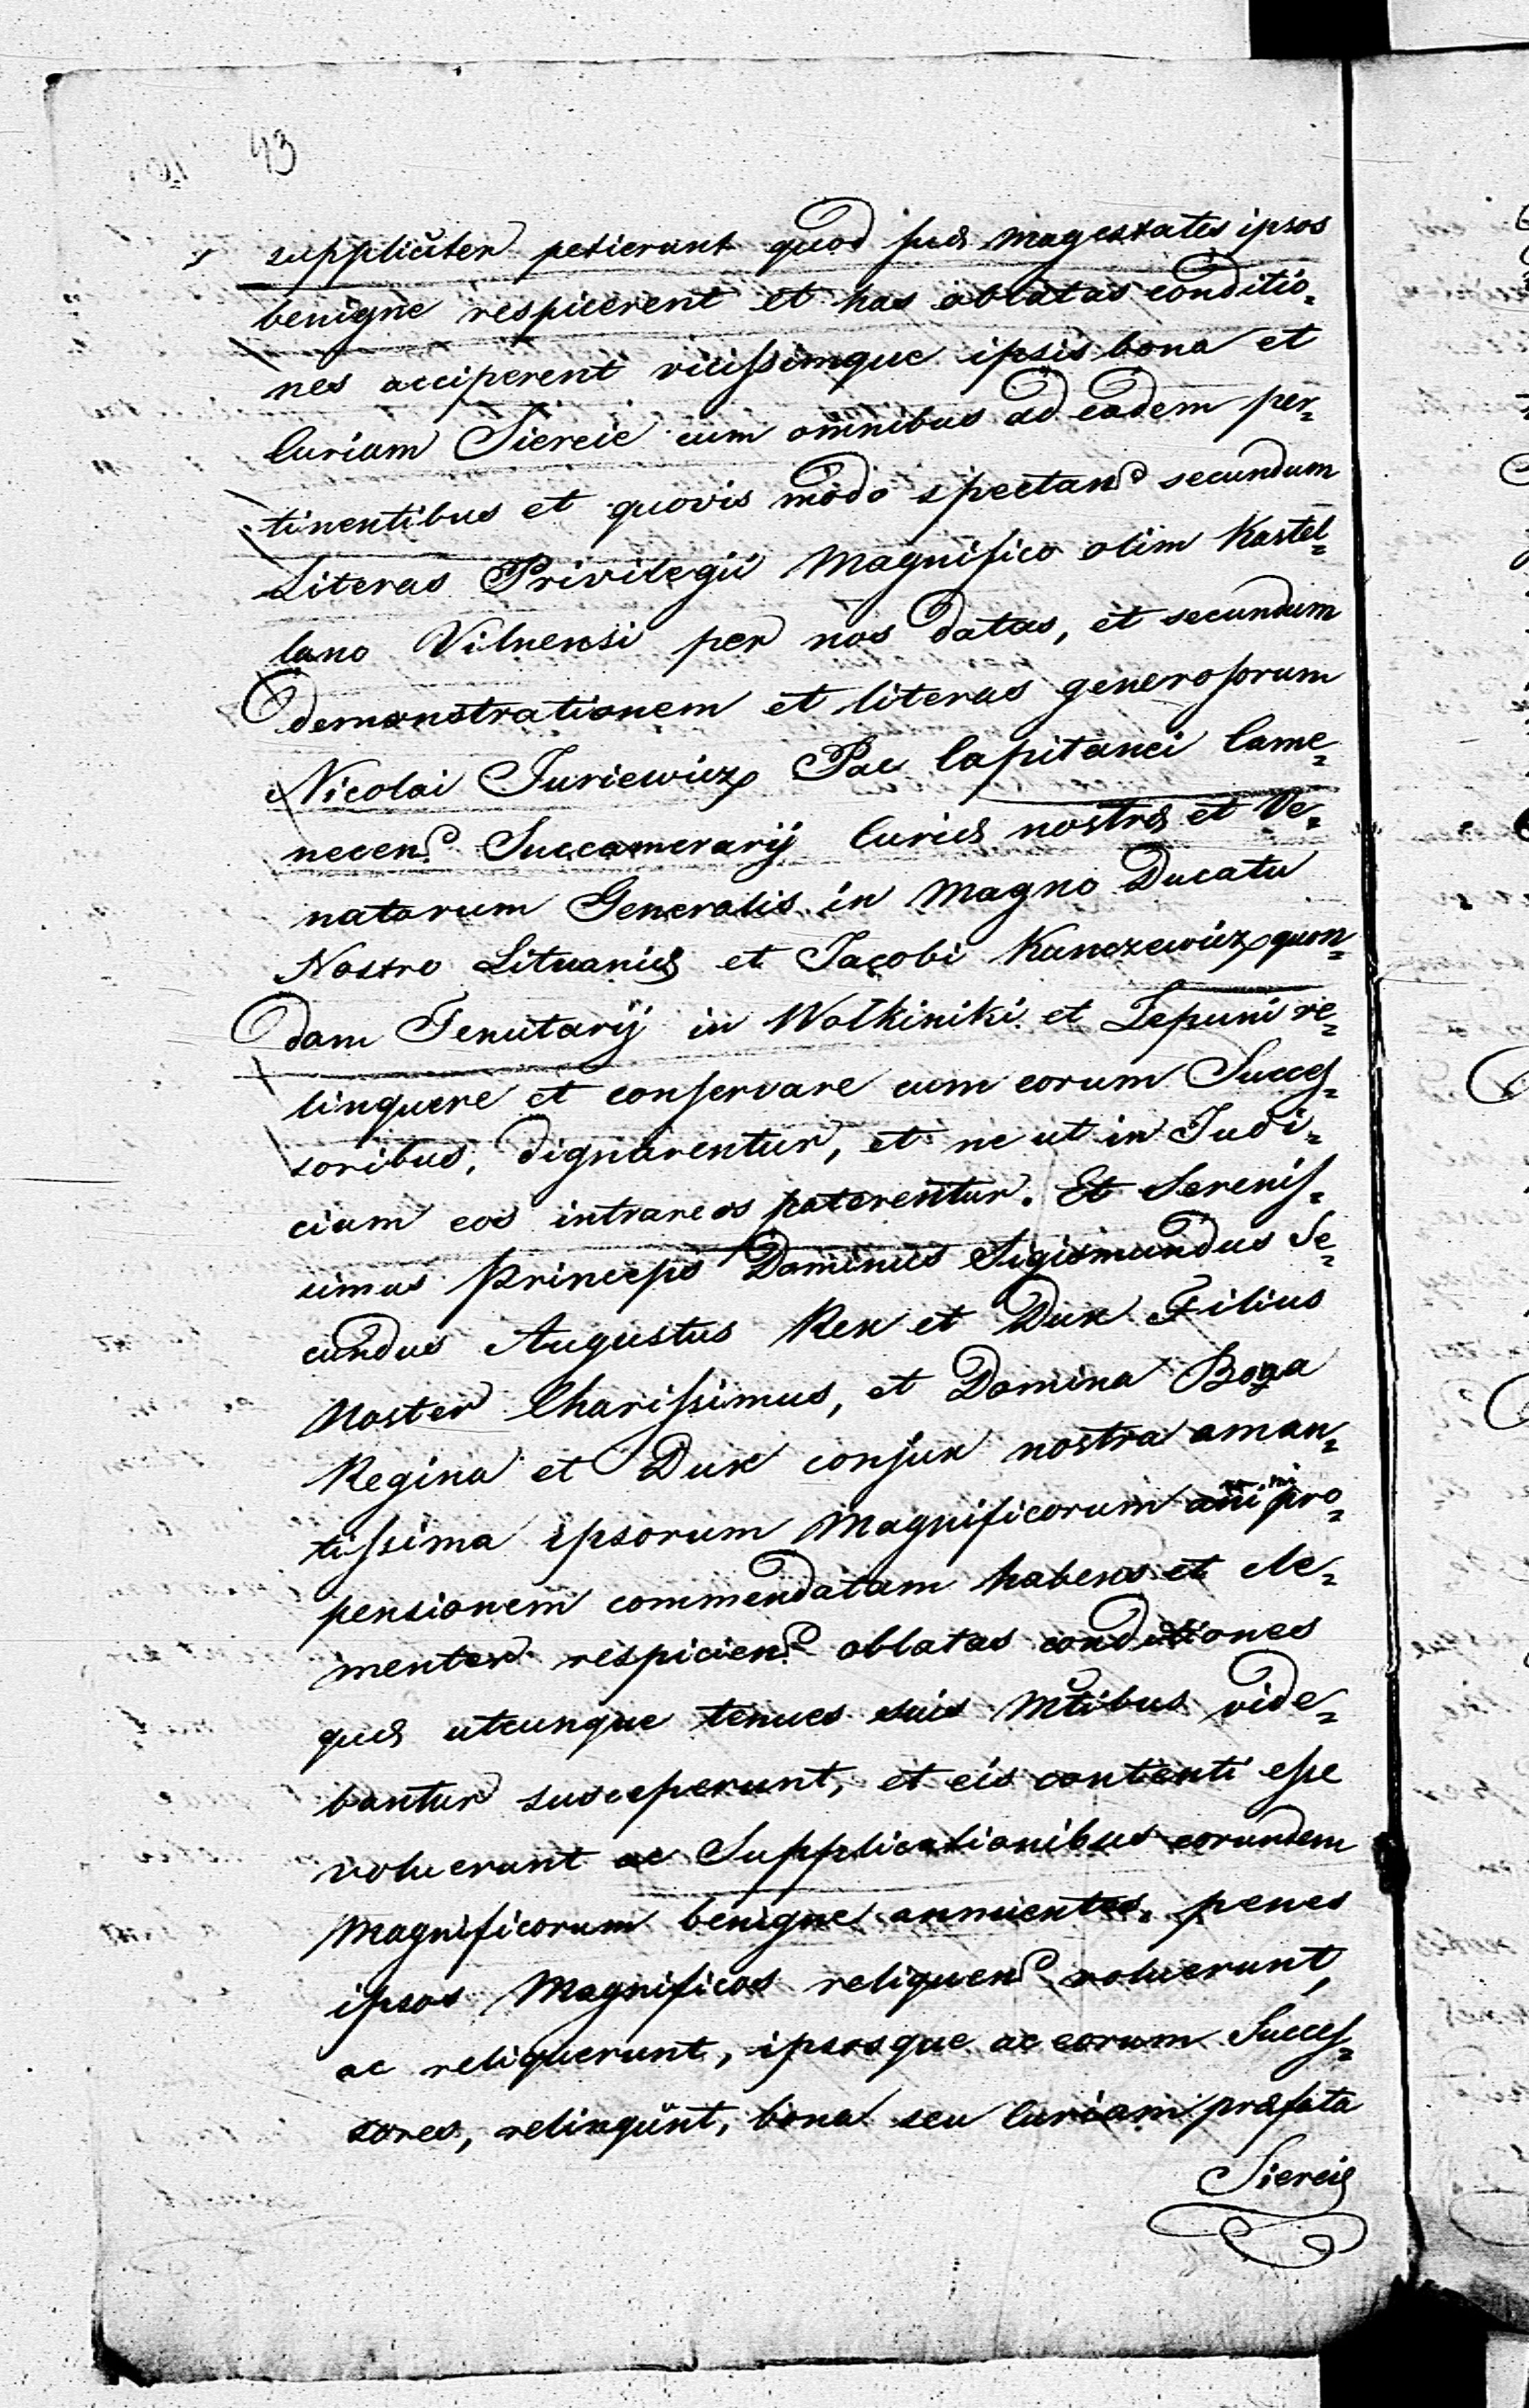 43
suppliciter petierunt quod suæ magestates ipsos
benigne respicerent et has oblatas conditio=
nes acciperent vicissimque ipsis bona et
Curiam Siereie cum omnibus ad eadem per=
tinentibus et quovis modo spectan: secundum
Literas Privilegii Magnifico olim Kastel=
lano Vilnensi per nos datas, et secundum
demonstrationem et literas generosorum
Nicolai Juriewicz Pac Capitanei Came=
necen: Succamerarij Curiæ nostræ et Ve=
natorum Generalis in Magno Ducatu
Nostro Lituaniæ et Jacobi Kunczewicz quon=
dam Tenutarij in Wolkiniki et Lepuni re=
linquere et conservare cum eorum Succes=
soribus, dignarentur, et ne ut in Judi=
cium eos intrare os paterentur. Et Serenis=
simus Princeps Dominus Sigismundus Se=
cundus Augustus Rex et Dux Filius
Noster Charissimus, et Domina Bona
Regina et Dux conjux nostra aman=
tissima ipsorum Magnificorum animi pro=
pensionem commendatam habens et cle=
menter respicien: oblatas conditiones
quæ utcunque tenues suis Mtibus vide=
bantur susceperunt, et eis contenti esse
voluerunt ac Supplicationibus eorundem
Magnificorum benigne annuentes. penes
ipsos Magnificos reliquen: voluerunt,
ac reliquerunt, ipsosque ac eorum Succes=
sores, relinqūnt, bona seu Curiam præfata
Siereie